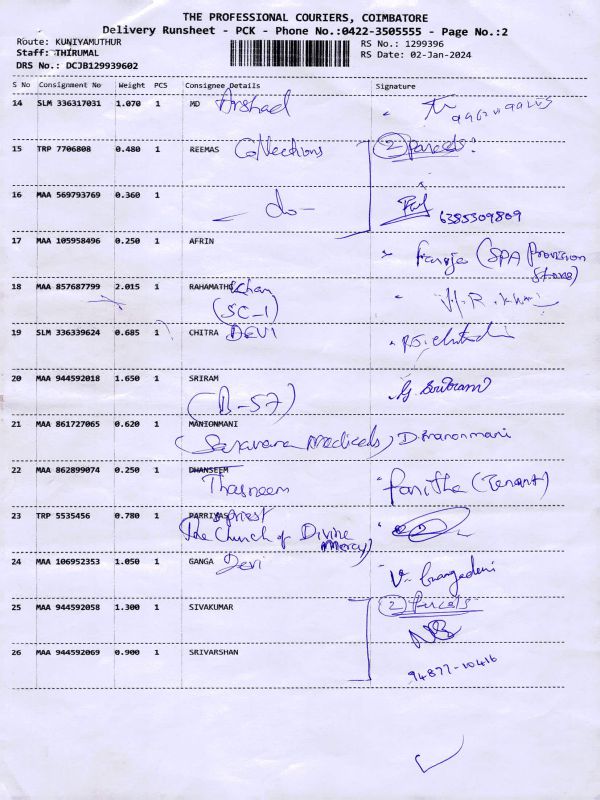 THE PROFESSIONAL COURIERS, COIMBATORE
Delivery Runsheet - PCK - Phone No.:0422-3505555 - Page No.:2
Route: KUNIYAMUTHUR RS No.: 1299396
Staff: THIRUMAL RS Date: 02-Jan-2024
DRS No.: DCJB129939602
S No Consignment No Weight PCS Consignee Details Signature
14 SLM 336317031 1.070 1 MD Arshad
15 TRP 7706808 0.480 1 REEMAS Collections (2) parcels
16 MAA 569793769 0.360 1 - do - 6385309809
17 MAA 105958496 0.250 1 AFRIN (SPA Provision
Store)
18 MAA 857687799 2.015 1 RAHAMATH Khan
(SC-1)
19 SLM 336339624 0.685 1 CHITRA DEVI
20 MAA 944592018 1.650 1 SRIRAM
(B-57)
21 MAA 861727065 0.620 1 MANIONMANI
(Saravana Medicals) D. Manonmani
22 MAA 862899074 0.250 1 DHANSEEM
Thasneem (Tenant)
23 TRP 5535456 0.780 1 priest
The Church of Divine
Mercy)
24 MAA 106952353 1.050 1 GANGA Devi V. Gangadevi
25 MAA 944592058 1.300 1 SIVAKUMAR (2) Parcels
26 MAA 944592069 0.900 1 SRIVARSHAN 94877-10416